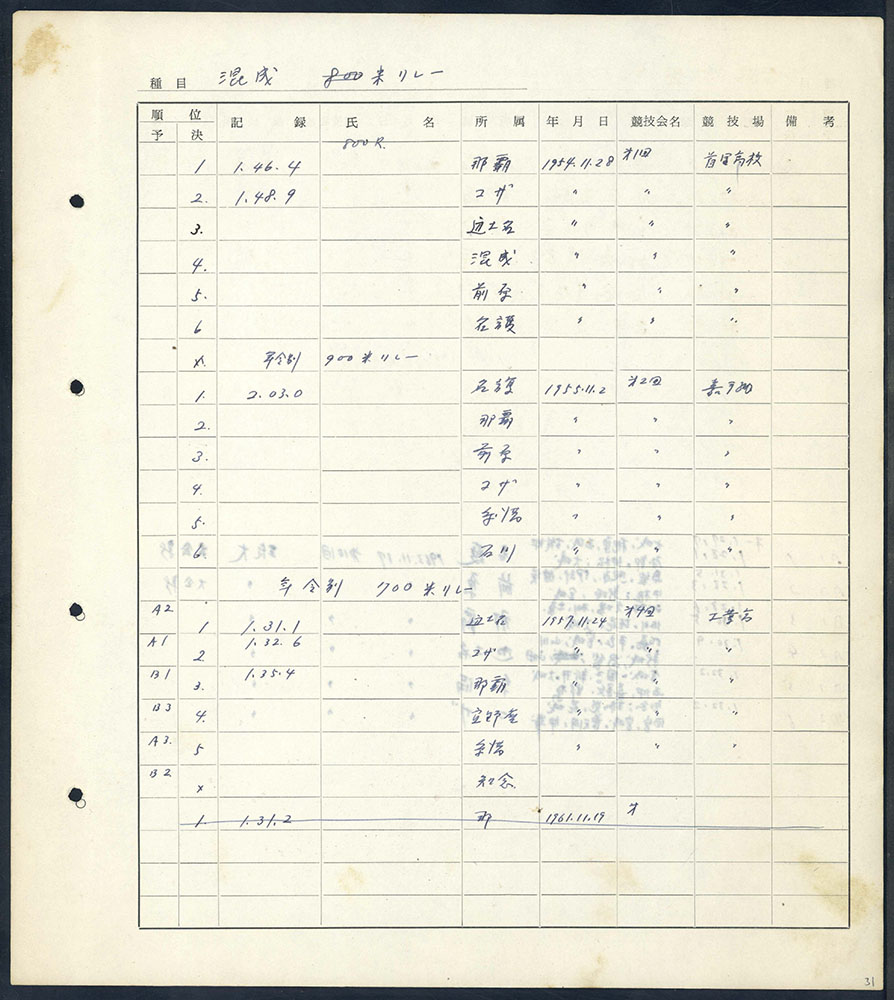 種目 混成 800米リレー
順位 記録 氏名 所属 年月日 競技会名 競技場 備考
予 決
800R.
1 1.46.4 那覇 1954.11.28 第1回 首里高校
2. 1.48.9 コザ 〃 〃 〃
3. 辺土名 〃 〃 〃
4. 混成 〃 〃 〃
5. 前原 〃 〃 〃
6 名護 〃 〃 〃
x. 年令別 900米リレー
1. 2.03.0 名護 1955.11.2 第2回 嘉手納
2. 那覇 〃 〃 〃
3. 前原 〃 〃 〃
4. コザ 〃 〃 〃
5. 糸満 〃 〃 〃
6 石川 〃 〃 〃
年令別 700米リレー
A2 1 1.31.1 辺土名 1957.11.24 第4回 工業高
A1 2 1.32.6 コザ 〃 〃 〃
B1 3. 1.35.4 那覇 〃 〃 〃
B3 4. 宜野座 〃 〃 〃
A3. 5 糸満 〃 〃 〃
B2 x 知念
1. 1.31.2 那 1961.11.19 第
31